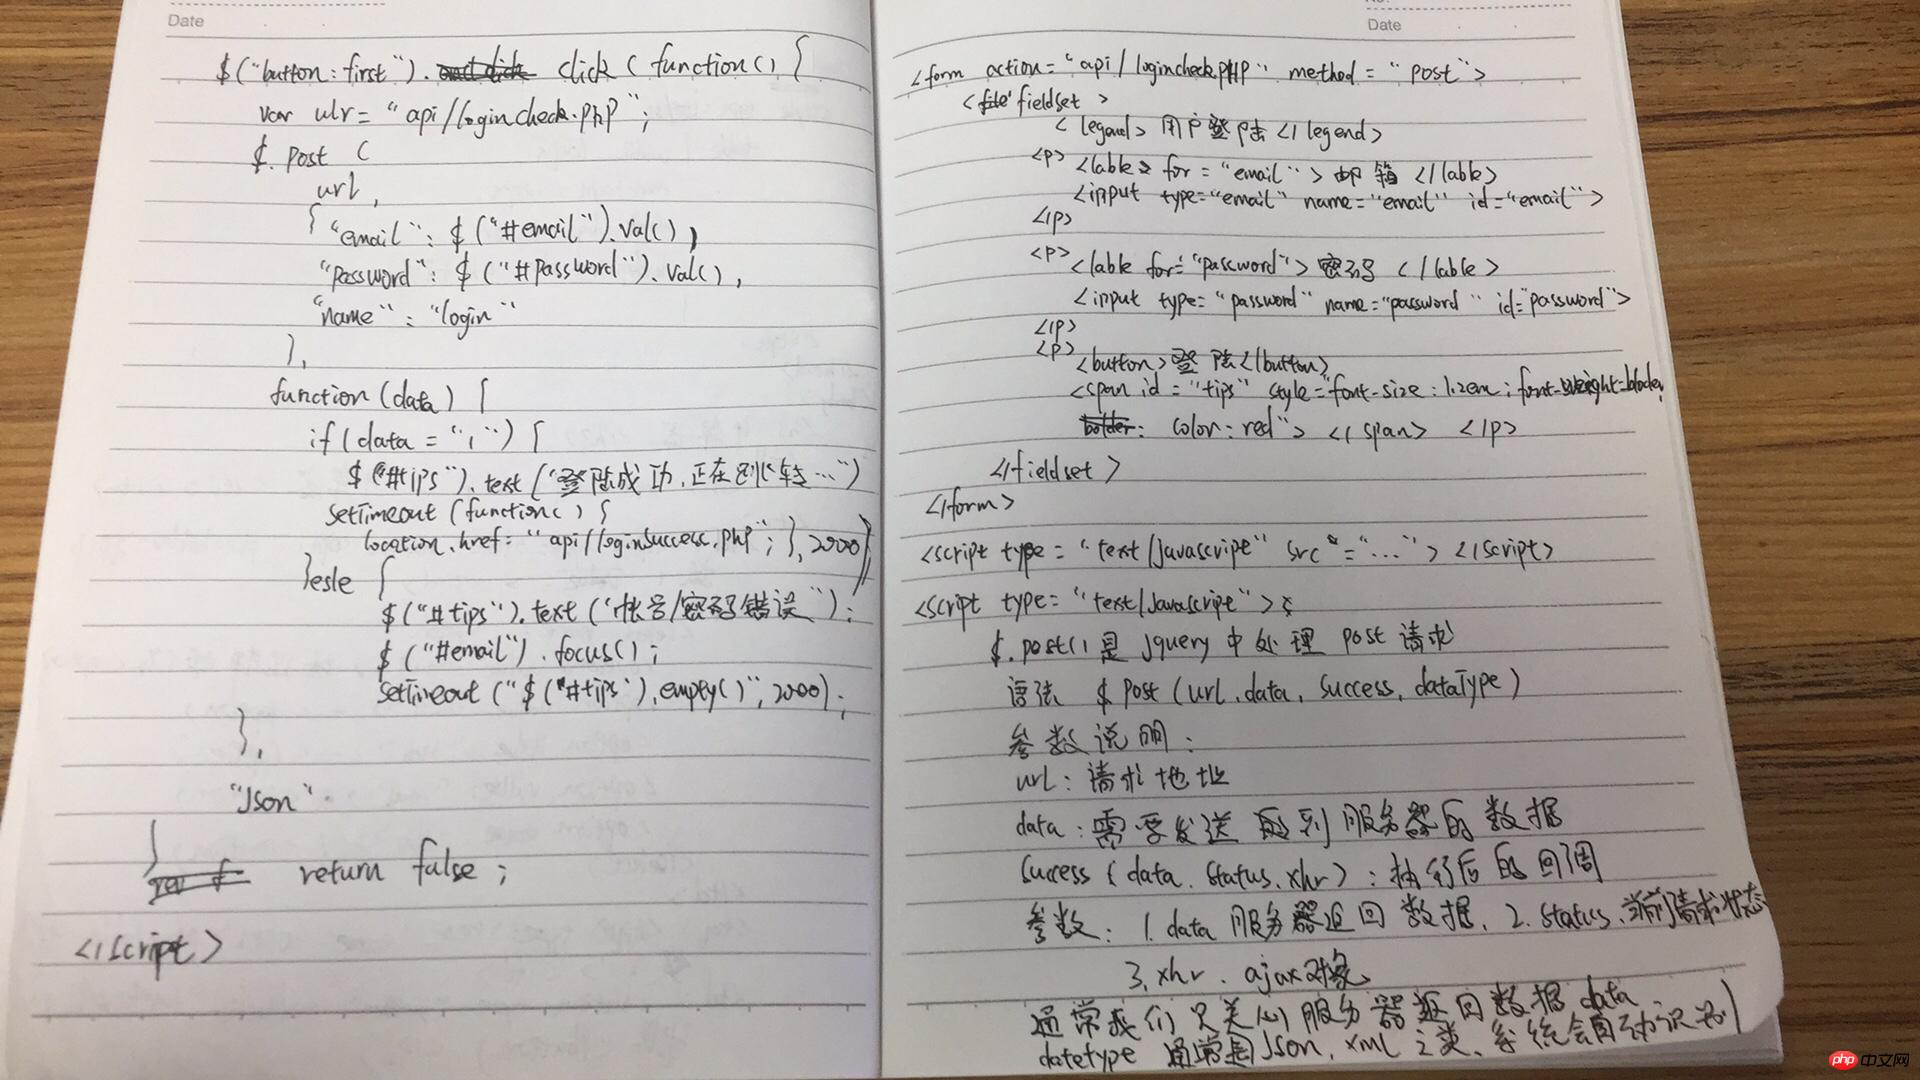 Date
$("button:first"). click(function() {
var ulr = "api/logincheck.php";
$. post (
url,
{ "email": $("#email").val(),
"password": $("#password").val(),
"name": "login"
},
function(data) {
if(data = "1") {
$("#tips").text("登陆成功,正在跳转…")
setTimeout(function() {
location.href= "api/loginsuccess.php"; },2000)
}esle {
$("#tips").text("帐号/密码错误");
$("#email").focus();
setTimeout("$("#tips").empty()",2000);
},
"Json".
)
return false;
</script>
No.
Date
<form action="api/logincheck.PHP" method="post">
<fieldset>
<legend>用户登陆</legend>
<p> <lable for="email">邮箱</lable>
<input type="email" name="email" id="email">
</p>
<p> <lable for="password">密码</lable>
<input type="password" name="password" id="password">
</p>
<p>
<button>登陆</button>
<span id="tips" style="font-size:1.2em; font-weight-bloder,
color:red"> </span> </p>
</fieldset>
</form>
<script type="text/javascripe" src="…"> </script>
<script type="text/javascripe">
$.post()是jquery中处理post请求
语法 $ post(url,data,success,dataType)
参数说明:
url:请求地址
data:需要发送到服务器的数据
success(data,status,xhr):执行后的回调
参数: 1.data 服务器返回数据, 2.status,当前请求状态
3.xhr. ajax对象
通常我们只关心服务器返回数据data
datetype 通常是Json, xml之类,系统会自动识别
php 中文网